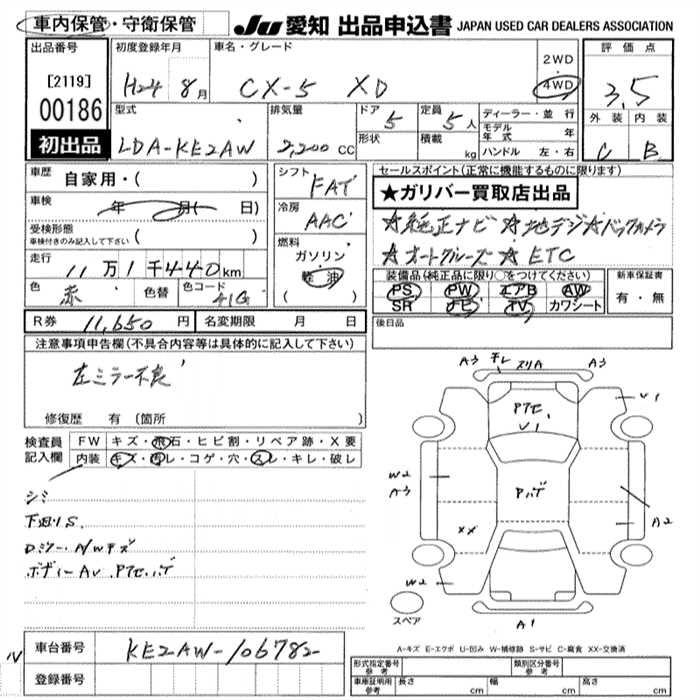 車内保管・守衛保管 JU 愛知 出品申込書 JAPAN USED CAR DEALERS ASSOCIATION
出品番号 初度登録年月 車名・グレード 2WD 評価点
[2119] H24 8月 CX-5 XD 4WD 3.5
00186 型式 排気量 ドア 5 定員 5人 ディーラー・並行 外装 内装
初出品 LDA-KE2AW 2,200cc 形状 積載 kg モデル年式 年 C B
ハンドル 左・右
車歴 自家用・( ) シフト FAT セールスポイント(正常に機能するものに限ります)
車検 年 月( 日) 冷房 AAC ★ガリバー買取店出品
受検形態 車検付きのみ記入して下さい ( ) 燃料 ★純正ナビ ★地デジ ★バックカメラ
走行 11万1千440km ガソリン・軽油 ★オートクルーズ ★ETC
色 赤 色替 色コード 41G ( ) 装備品(純正品に限り○をつけてください) 新車保証書
PS PW エアB AW 有・無
SR ナビ TV カワシート
R券 11,650円 名変期限 月 日 後日品
注意事項申告欄(不具合内容等は具体的に記入して下さい)
左ミラー不良
修復歴 有 (箇所
検査員記入欄 FW キズ・飛石・ヒビ割・リペア跡・X要
内装 キズ・汚レ・コゲ・穴・スレ・キレ・破レ
シミ
下廻りS.
Dミラー・A/Wキズ
ボディーAU PTセ.ハゲ
A3 スリA A3
PTセ. V1
V1
W2
A3
Pハゲ
A2
XX
W2
スペア
A1
A-キズ E-エクボ U-凹み W-補修跡 S-サビ C-腐食 XX-交換済
車台番号 KE2AW-106782
登録番号
形式指定番号 参考 類別区分番号 参考
車庫証明用 参考 長さ cm 幅 cm 高さ cm